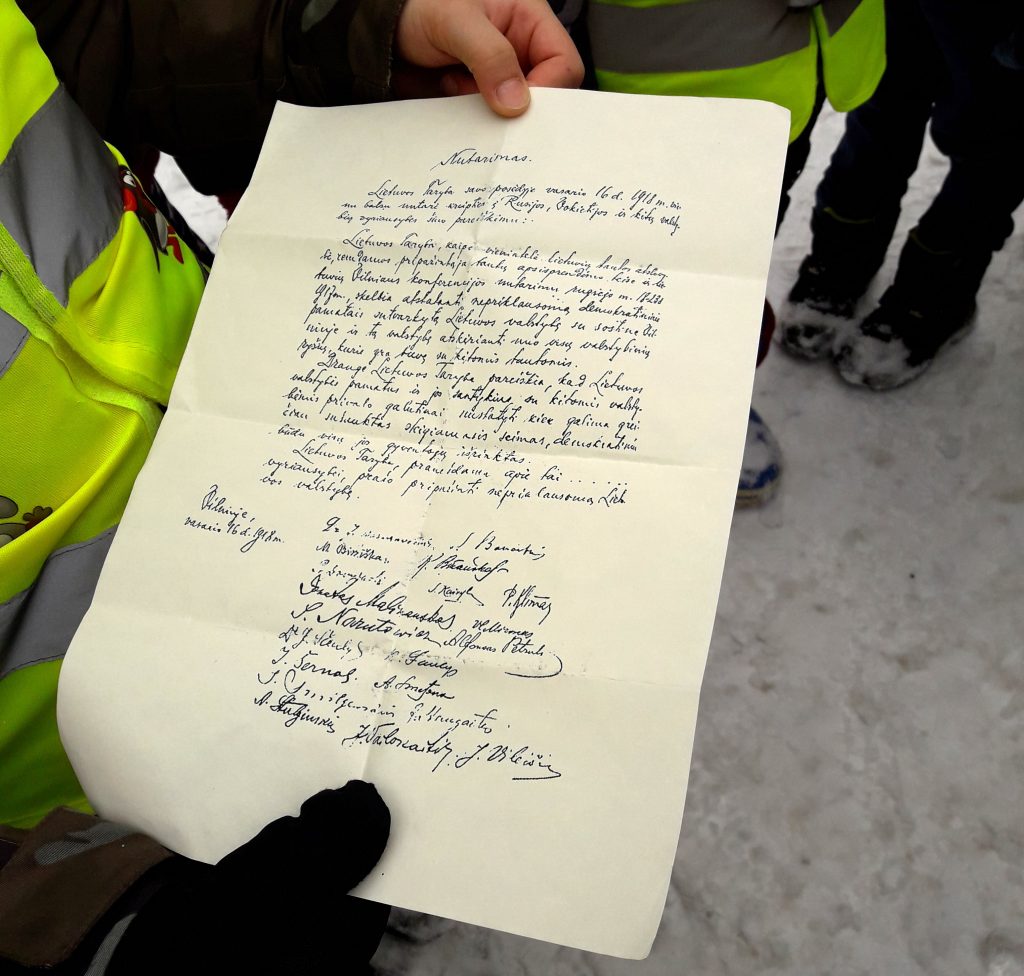 Nutarimas.
Lietuvos Taryba savo posėdyje vasario 16 d. 1918 m. vie-
nu balsu nutarė kreipties į Rusijos, Vokietijos ir kitų valsty-
bių vyriausybes šiuo pareiškimu:
Lietuvos Taryba, kaipo vienintelė lietuvių tautos atstovy-
bė, remdamos pripažintąja tautų apsisprendimo teise ir lie-
tuvių Vilniaus konferencijos nutarimu rugsėjo m. 18-23 d.
1917 m., skelbia atstatanti nepriklausomą demokratiniais
pamatais sutvarkytą Lietuvos valstybę su sostine Vil-
niuje ir tą valstybę atskirianti nuo visų valstybinių
ryšių, kurie yra buvę su kitomis tautomis.
Drauge Lietuvos Taryba pareiškia, kad Lietuvos
valstybės pamatus ir jos santykius su kitomis valsty-
bėmis privalo galutinai nustatyti kiek galima grei-
čiau sušauktas steigiamasis seimas, demokratiniu
būdu visų jos gyventojų išrinktas.
Lietuvos Taryba, pranešdama apie tai ......
vyriausybei, prašo pripažinti nepriklausomą Lietu-
vos valstybę.
Vilniuje,
vasario 16 d. 1918 m.
Dr. J. Basanavičius S. Banaitis
M. Biržiška K. Bizauskas
J. Kairys P. Klimas
Donatas Malinauskas Vl. Mironas
S. Narutowicz Alfonsas Petrulis
Dr. J. Šaulys K. Šaulys
J. Šernas A. Smetona
J. Smilgevičius
A. Stulginskis J. Vailokaitis J. Vileišis